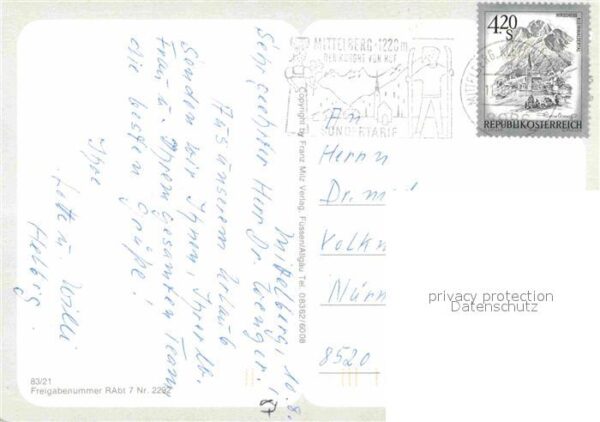 Mittelberg, 10.8.
Sehr geehrter Herr Dr.
Aus unserem Urlaub
senden wir Ihnen, Ihrer lb.
Frau u. Ihrem gesamten Team
die besten Grüße!
Ihre
Willi
Helbig
83/21
Freigabenummer RAbt 7 Nr. 229
Copyright by Franz Milz Verlag, Füssen/Allgäu Tel. 08362/6008
MITTELBERG·1220m
DER KOMMT VON HUF
SONDERTARIF
MITTELBERG
4.20
S
REPUBLIK ÖSTERREICH
An
Herrn
Dr. m
Volk
Nürn
8520
privacy protection
Datenschutz